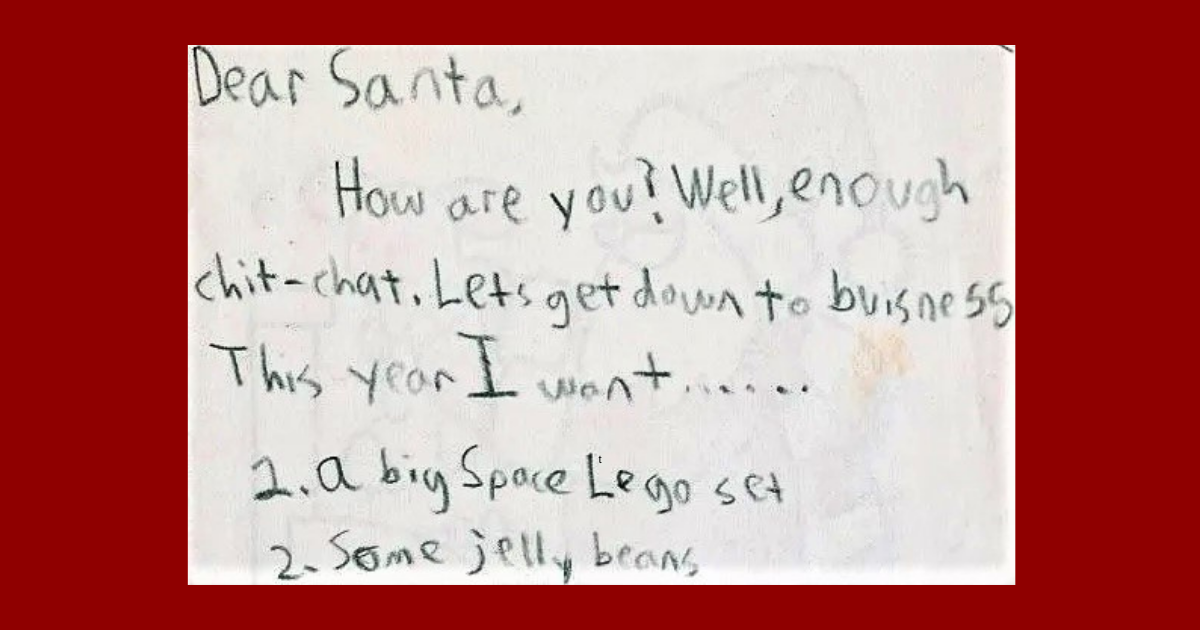 Dear Santa,
How are you? Well, enough
chit-chat. Lets get down to buisness
This year I want......
1. a big Space Lego set
2. Some jelly beans